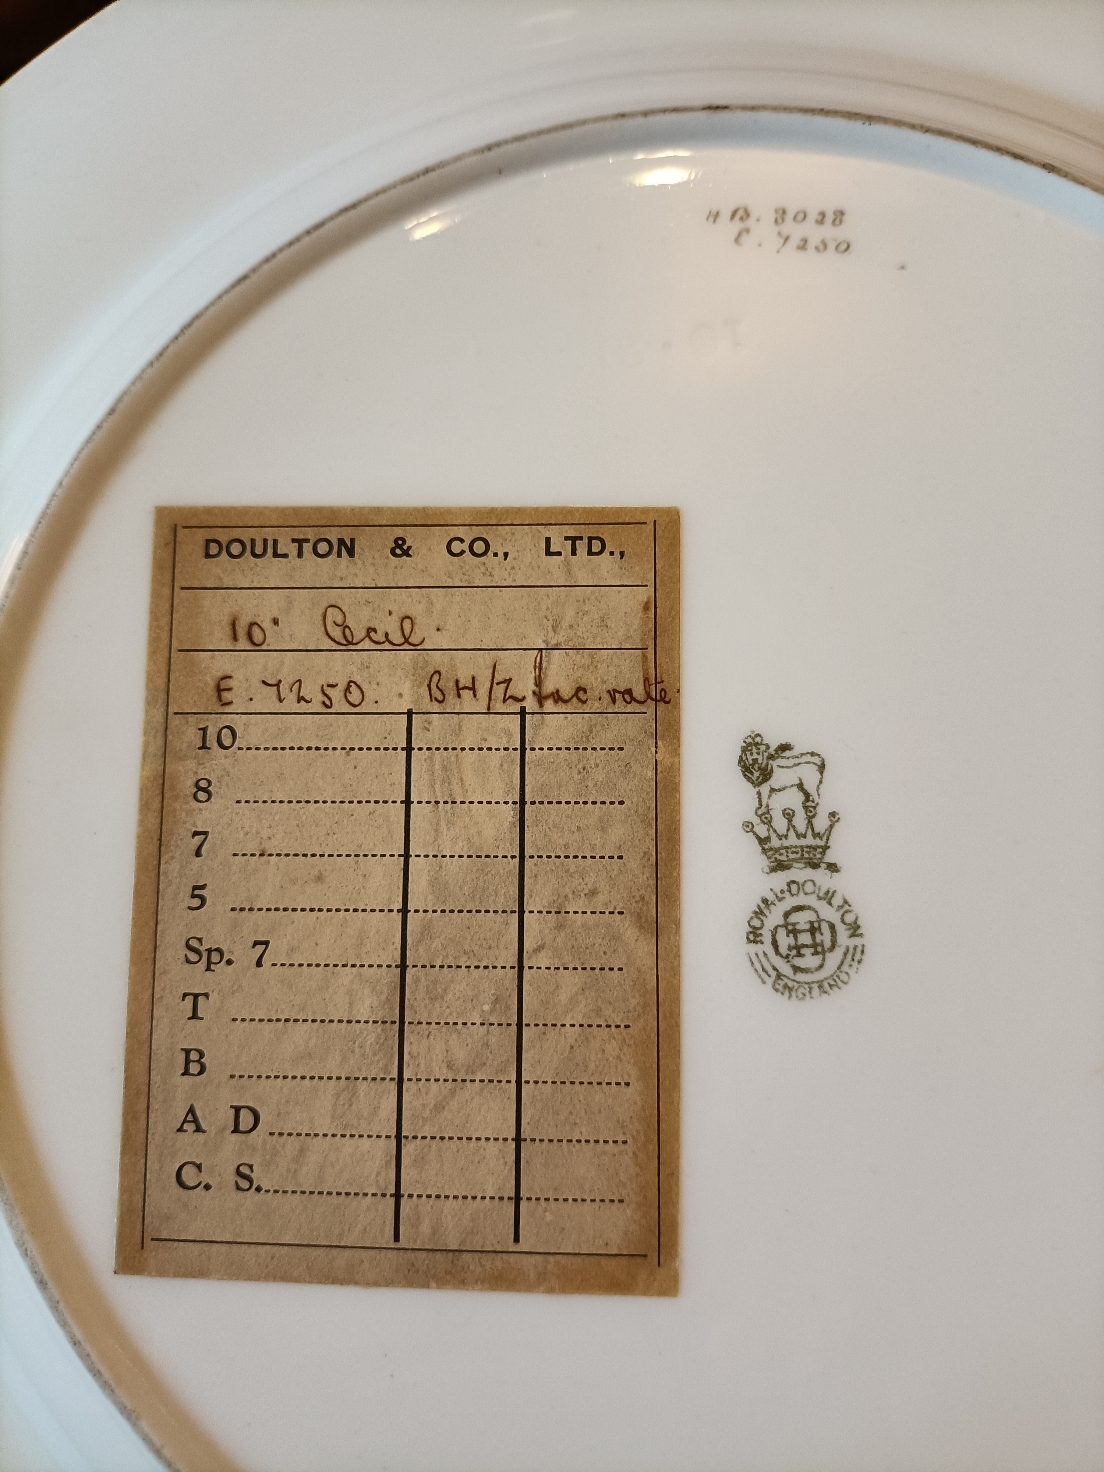 HB. 8028
E. 7250
DOULTON & CO., LTD.,
10" Cecil.
E. 7250. BH/Z fac. rate.
10
8
7
5
Sp. 7
T
B
A D
C. S.
ROYAL·DOULTON
ENGLAND